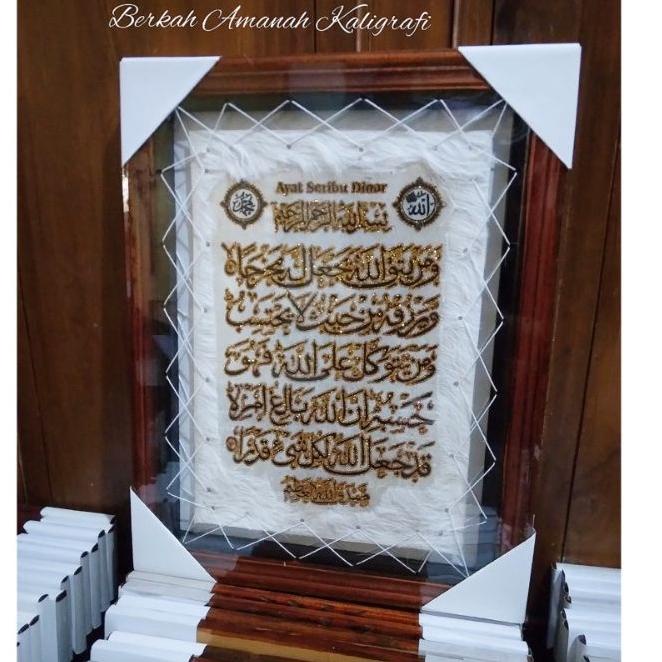 Berkah Amanah Kaligrafi
Ayat Seribu Dinar
محمد
الله
بسم الله الرحمن الرحيم
ومن يتق الله يجعل له مخرجا
ويرزقه من حيث لا يحتسب
ومن يتوكل على الله فهو
حسبه ان الله بالغ امره
قد جعل الله لكل شيء قدرا
صدق الله العظيم